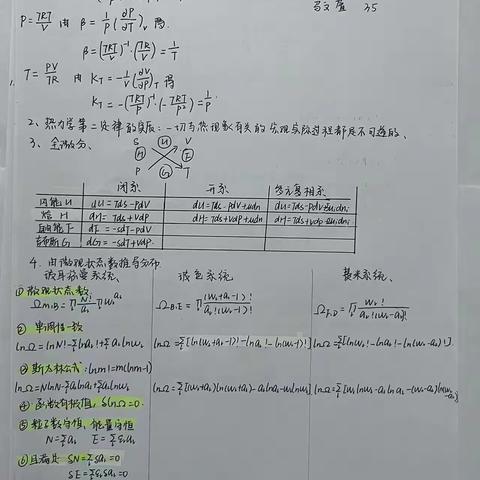 马文萱 35
P=γRT/V 由 β=1/P(∂P/∂T)v 得
β=(γRT/V)⁻¹(γR/V)=1/T
T=PV/γR 由 KT=-1/V(∂V/∂P)T 得
KT=-(γRT/P)⁻¹(-γRT/P²)=1/P
2、热力学第二定律的实质:一切与热现象有关的宏观实际过程都是不可逆的、
3、全微分、
S H V
H F
P G T
闭系 开系 多元复相系
内能U dU=Tds-pdV dU=Tds-pdV+udn dU=Tds-pdV+Σuidni
焓 H dH=Tds+Vdp dH=Tds+Vdp+udn dH=Tds+Vdp+Σuidni
自由能F dF=-sdT-pdV
吉布斯G dG=-sdT+Vdp
4、由微观状态数推导分布
玻耳兹曼系统、 玻色系统 费米系统、
①微观状态数
ΩM.B=N!/Πal! Πwl^al ΩB.E=Π(wl+al-1)!/al!(wl-1)! ΩF.D=Πwl!/al!(wl-al)!
②单调性-致
lnΩ=lnN!-Σlnal!+Σal lnwl lnΩ=Σ[ln(wl+al-1)!-lnal!-ln(wl-1)!] lnΩ=Σ[lnwl!-lnal!-ln(wl-al)!]
③斯大林公式:lnm!=m(lnm-1)
lnΩ=NlnN-Σal lnal+Σal lnwl lnΩ=Σ[(wl+al)ln(wl+al)-al lnal-wl lnwl] lnΩ=Σ[wl lnwl-al lnal-(wl-al)ln(wl-al)]
④函数有极值,δlnΩ=0
⑤粒子数守恒,能量守恒
N=Σal E=Σεlal
⑥且满足 δN=Σδal=0
δE=Σεlδal=0